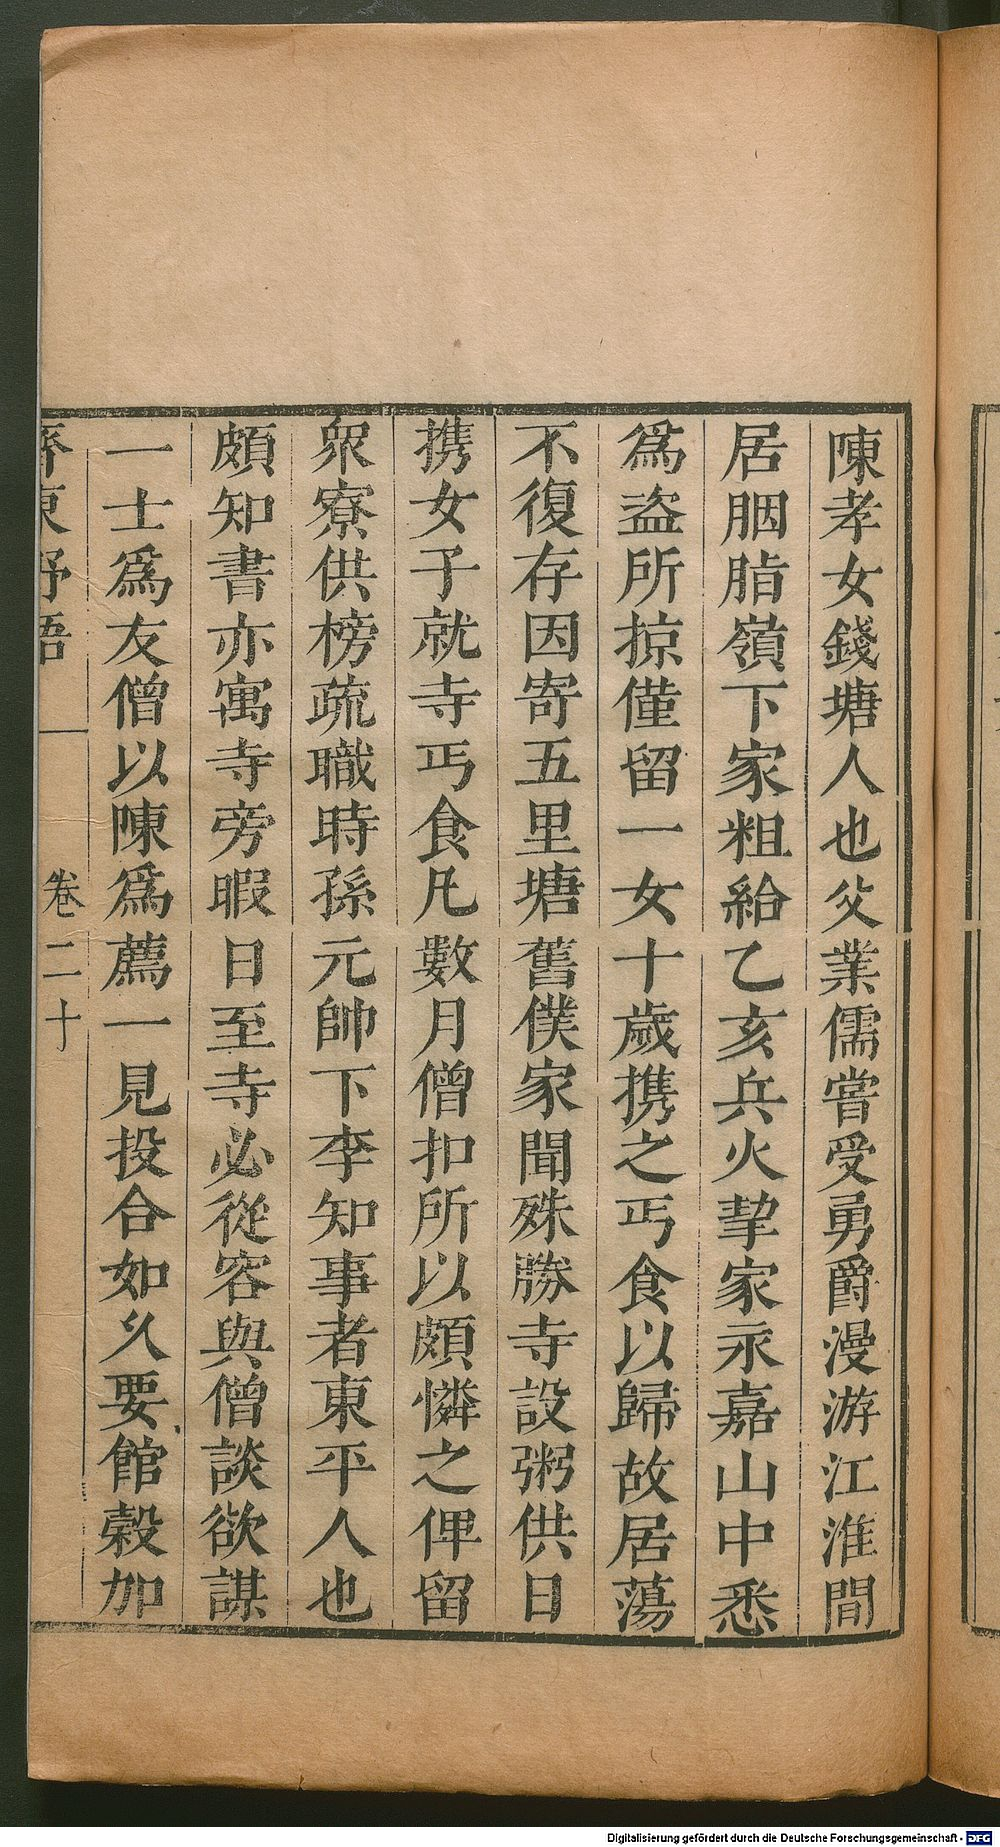 陳孝女錢塘人也父業儒嘗受勇爵漫游江淮間
居胭脂嶺下家粗給乙亥兵火挈家永嘉山中悉
爲盗所掠僅留一女十歲携之丐食以歸故居蕩
不復存因寄五里塘舊僕家聞殊勝寺設粥供日
携女子就寺丐食凡數月僧扣所以頗憐之俾留
衆寮供榜疏職時孫元帥下李知事者東平人也
頗知書亦寓寺旁暇日至寺必從容與僧談欲謀
一士爲友僧以陳爲薦一見投合如久要館穀加
齊東野語 卷二十
Digitalisierung gefördert durch die Deutsche Forschungsgemeinschaft - DFG